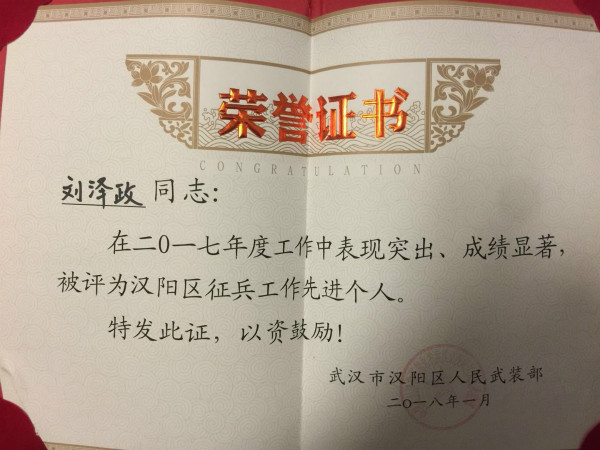 荣誉证书
CONGRATULATION
刘泽政 同志:
在二0一七年度工作中表现突出、成绩显著,
被评为汉阳区征兵工作先进个人。
特发此证,以资鼓励!
武汉市汉阳区人民武装部
二0一八年一月